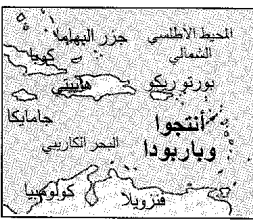 المحيط الأطلسي
الشمالي
جزر البهاما
كوبا
هاييتي
بورتوريكو
جامايكا
أنتجوا
وباربودا
البحر الكاريبي
فنزويلا
كولومبيا